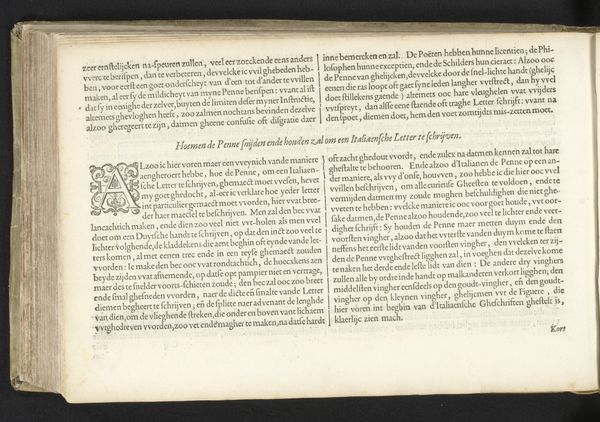 zoer ernstelijcken na-speuren zullen, veel eer zoeckende eens anders
vverc te berispen, dan te verbeteren, devvelcke ic vvil ghebeden heb-
ben, voor eerst een goet onderscheyt van d'een tot d'ander te vvillen
maken, al eer sy de mildicheyt van myne Penne berispen: vvant al ist
dat sy in eenighe der zelver, buyten de limiten deser myner Instructie,
altemets ghevloghen heeft, zoo zalmen nochtans bevinden dezelve
alzoo gheregeert te zijn, datmen gheene confusie oft disgratie daer
inne bemercken en zal. De Poëten hebben hunne licentien; de Phi-
losophen hunne exceptien, ende de Schilders hun cieraet: Alzoo ooc
de Penne van ghelijcken, devvelcke door de snel-lichte handt (ghelijc
eenen die ras loopt oft gaet syne leden langher vvtstrect, dan hy vvel
doet stillekens gaende) altemets ooc hare vleughelen vvat vvijders
vvtspreyt, dan alsse eene staende oft traghe Letter schrijft: vvant na
den spoet, diemen doet, hem den voet zomtijdts mis-zetten moet.
Hoemen de Penne snijden ende houden zal om een Italiaensche Letter te schrijven.
Alzoo ic hier voren maer een vveynich vande maniere
aenghetoert hebbe, hoe de Penne, om een Italiaen-
sche Letter te schrijven, ghemaeckt moet vvesen, hevet
my goet ghedocht, al-eer ic verklare hoe yeder letter
int particulier gemaect moet vvorden, hier vvat bree-
der haer maecsel te beschrijven. Men zal den bec vvat
lancachtich maken, ende dien zoo veel niet vvt-holen als men vvel
doet om een Duytsche handt te schrijven, op dat den inct zoo veel te
lichter volghende, de kladdekens die aent beghin oft eynde vande let-
ters komen, al met eenen trec ende in een reyse ghemaect zouden
vvorden: Ic make den bec ooc vvat rondachtich, de hoecxkens aen
beyde zijden vvat afnemende, op datse opt pampier niet en vertrage,
maer des te snelder voorts-schieten zoude; den bec zal ooc zoo breet
ende smal ghesneden vvorden, naer de dicte en smalte vande Letter
diemen begheert te schrijven; en de splitte naer advenant de lenghde
van dien, om de vlieghende streken, die onder en boven vant lichaem
vvtghedreven vvorden, zoo vet ende magher te maken, na datse hardt
oft zacht ghedout vvordt, ende zulcx na datmen kennen zal tot hare
ghestalte te behooren. Ende alzoo d'Italianen de Penne op een an-
der maniere, als vvy d'onse, houvven, zoo hebbe ic die hier ooc vvel
vvillen beschrijven, om alle curieuse Gheesten te voldoen, ende te
vermijden datmen my zoude moghen beschuldighen die niet ghe-
vveten te hebben: vvelcke maniere ic ooc voor goet houde, vvt oor-
sake datmen, de Penne alzoo houdende, zoo veel te lichter ende veer-
digher schrijft: Sy houden de Penne maer metten duym ende den
voorsten vingher, alzoo dat het vvterste vanden duym kome te staen
neffens het eerste lidt vanden voorsten vingher, den vvelcken ter zij-
den de Penne vvtghestrect ligghen zal, in voeghen dat dezelve kome
te naken het derde ende leste lidt van dien: De andere dry vinghers
zullen alle by ordre inde handt op malkanderen verkort ligghen; den
middelsten vingher eensdeels op den goudt-vingher, en den goudt-
vingher op den kleynen vingher, ghelijcmen vvt de Figuere, die
hier voren int beghin van d'Italiaensche Gheschriften ghestelt is,
klaerlijc zien mach.
Kort